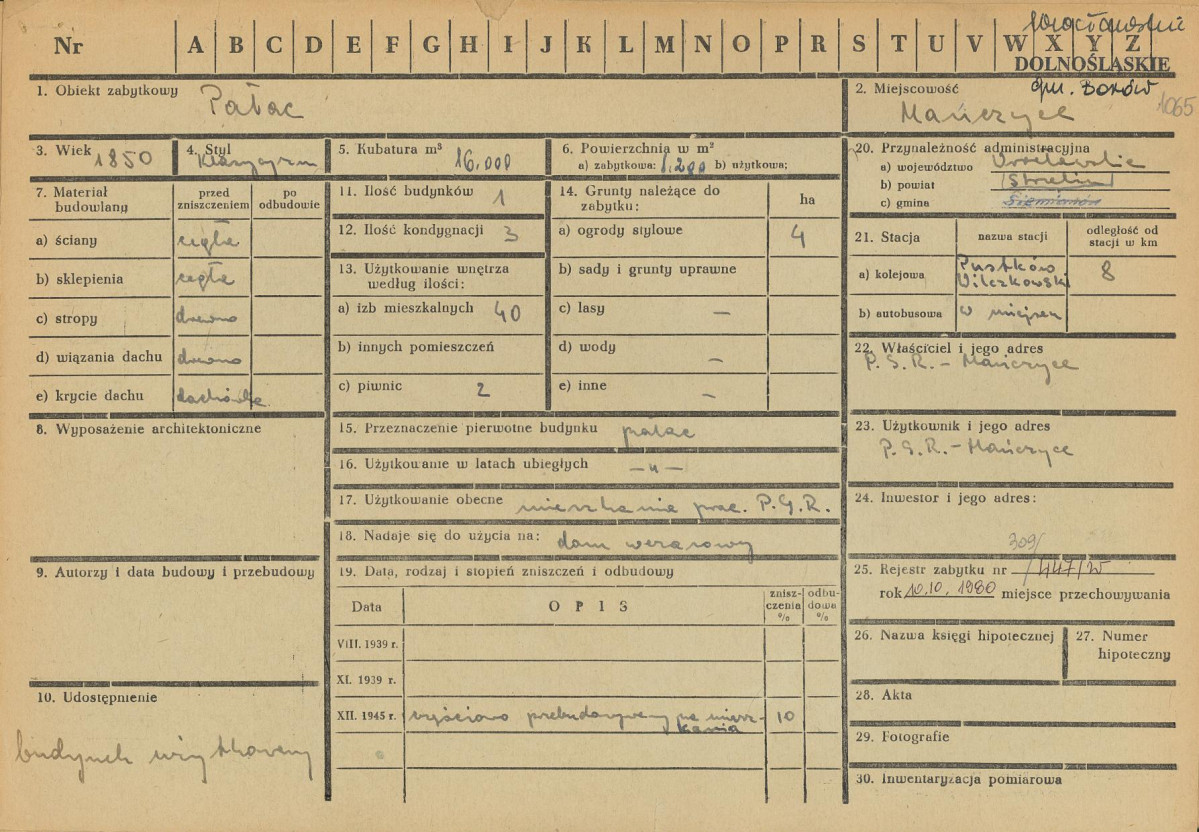 Wrocławskie
Nr A B C D E F G H I J K L M N O P R S T U V W X Y Z
DOLNOŚLĄSKIE
1. Obiekt zabytkowy Pałac
2. Miejscowość gm. Borów
Mańczyce
1065
3. Wiek 1850
4. Styl klasycyzm
5. Kubatura m³ 16.000
6. Powierzchnia w m²
a) zabytkowa: 1.200 b) użytkowa:
20. Przynależność administracyjna
a) województwo Wrocławskie
b) powiat Strzelin
c) gmina
7. Materiał budowlany
przed zniszczeniem
po odbudowie
a) ściany cegła
b) sklepienia cegła
c) stropy drewno
d) wiązania dachu drewno
e) krycie dachu dachówka
11. Ilość budynków 1
12. Ilość kondygnacji 3
13. Użytkowanie wnętrza
według ilości:
a) izb mieszkalnych 40
b) innych pomieszczeń
c) piwnic 2
14. Grunty należące do
zabytku:
ha
a) ogrody stylowe 4
b) sady i grunty uprawne
c) lasy —
d) wody —
e) inne —
21. Stacja
nazwa stacji
odległość od
stacji w km
a) kolejowa Pustków
Wilczkowski 8
b) autobusowa w miejscu
22. Właściciel i jego adres
P.G.R. - Mańczyce
8. Wyposażenie architektoniczne
15. Przeznaczenie pierwotne budynku pałac
16. Użytkowanie w latach ubiegłych —"—
17. Użytkowanie obecne mieszkania prac. P.G.R.
18. Nadaje się do użycia na: dom wczasowy
23. Użytkownik i jego adres
P.G.R. - Mańczyce
24. Inwestor i jego adres:
309/
25. Rejestr zabytku nr 447/W
rok 10.10.1980 miejsce przechowywania
9. Autorzy i data budowy i przebudowy
19. Data, rodzaj i stopień zniszczeń i odbudowy
Data
OPIS
znisz-
czenia
%
odbu-
dowa
%
VIII. 1939 r.
XI. 1939 r.
XII. 1945 r. częściowo przebudowany na miesz-
kania 10
26. Nazwa księgi hipotecznej
27. Numer
hipoteczny
10. Udostępnienie
budynek użytkowany
28. Akta
29. Fotografie
30. Inwentaryzacja pomiarowa